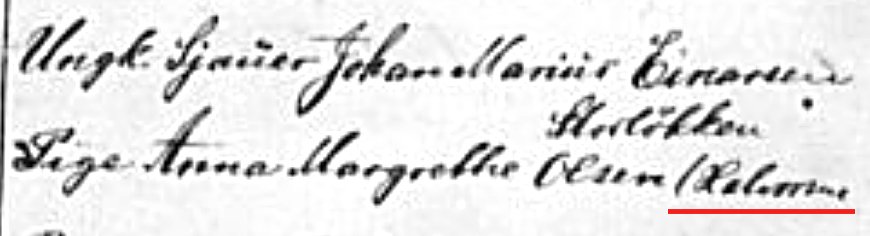 Ungk. Sjauer Johan Marius Einarsen
Storlökken
Pige Anna Margrethe Olsen